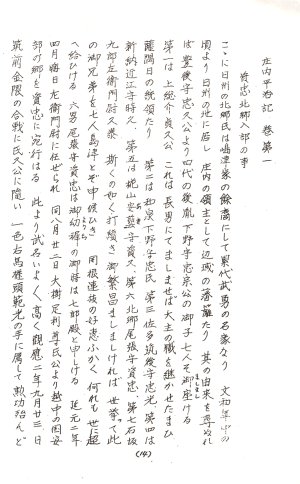 庄内平治記 巻第一
資忠北郷入部の事
こゝに日州の北郷氏は嶋津家の餘裔にして累代武勇の名家なり 文和年中の
頃より日州の地に居し 庄内の領主として辺域の藩籬たり 其の由来を尋ぬれ
ば 豊後守忠久公より四代の後胤下野守忠宗公の御子七人そ御座ける
第一は上総介貞久公 これは長男にてましませば太主の職を継かせたまひ
薩隅日の統領たり 第二は和泉下野守忠氏 第三佐多筑後守忠光 第四は
新納近江守時久 第五は桃山安藝守資久 第六北郷尾張守資忠 第七石坂
九郎左衛門尉久泰 斯くの如く打續き御繁昌ましましければ 世挙って此
の御兄弟を七人島津とぞ申傳ひき 同根連枝の好恵ふかく 何れも世に超
へ給ひける 六男尾張守資忠は御幼稚の御時は七郎殿と申しける 延元二年
四月晦日左衛門尉に任せられ 同八月廿二日大樹足利尊氏公より越中の国安
部の郷を資忠に宛行はる 此より武名いよく高く觀應二年九月廿三日
筑前金隈の合戦に氏久公に随い 一色右馬權頭範光の手に属して勲功殆んど
(14)